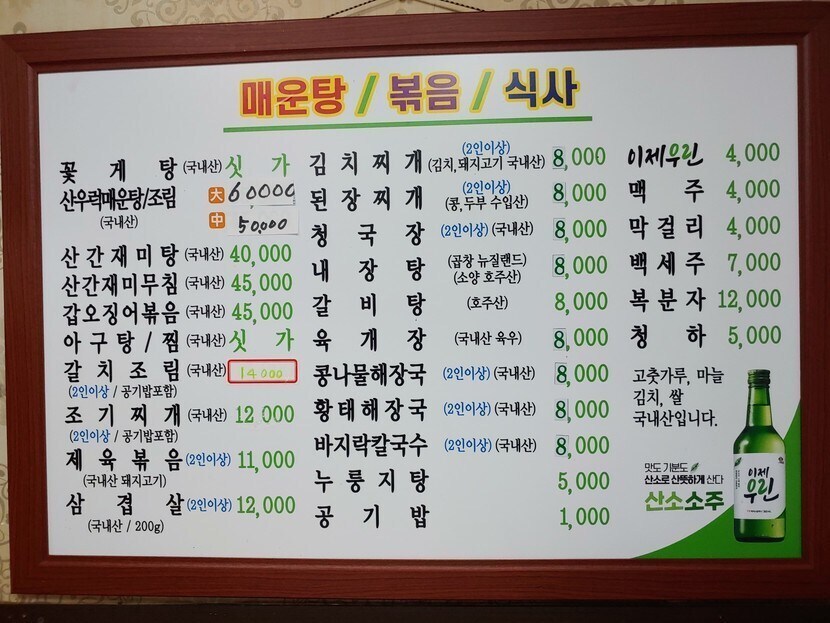 매운탕 / 볶음 / 식사
꽃게탕 (국내산) 싯가
산우럭매운탕/조림 大 60000
(국내산) 中 50,000
산간재미탕 (국내산) 40,000
산간재미무침 (국내산) 45,000
갑오징어볶음 (국내산) 45,000
아구탕/찜 (국내산) 싯가
갈치조림 (국내산) 14000
(2인이상 / 공기밥포함)
조기찌개 (국내산) 12,000
(2인이상 / 공기밥포함)
제육볶음 (2인이상) 11,000
(국내산 돼지고기)
삼겹살 (2인이상) 12,000
(국내산 / 200g)
김치찌개 (2인이상) 8,000
(김치, 돼지고기 국내산)
된장찌개 (2인이상) 8,000
(콩, 두부 수입산)
청국장 (2인이상) (국내산) 8,000
내장탕 (곱창 뉴질랜드) 8,000
(소양 호주산)
갈비탕 (호주산) 8,000
육개장 (국내산 육우) 8,000
콩나물해장국 (2인이상) (국내산) 8,000
황태해장국 (2인이상) (국내산) 8,000
바지락칼국수 (2인이상) (국내산) 8,000
누룽지탕 5,000
공기밥 1,000
이제우린 4,000
맥주 4,000
막걸리 4,000
백세주 7,000
복분자 12,000
청하 5,000
고춧가루, 마늘
김치, 쌀
국내산입니다.
맛도 기분도
산소로 산뜻하게 산다
산소소주
이제
우린